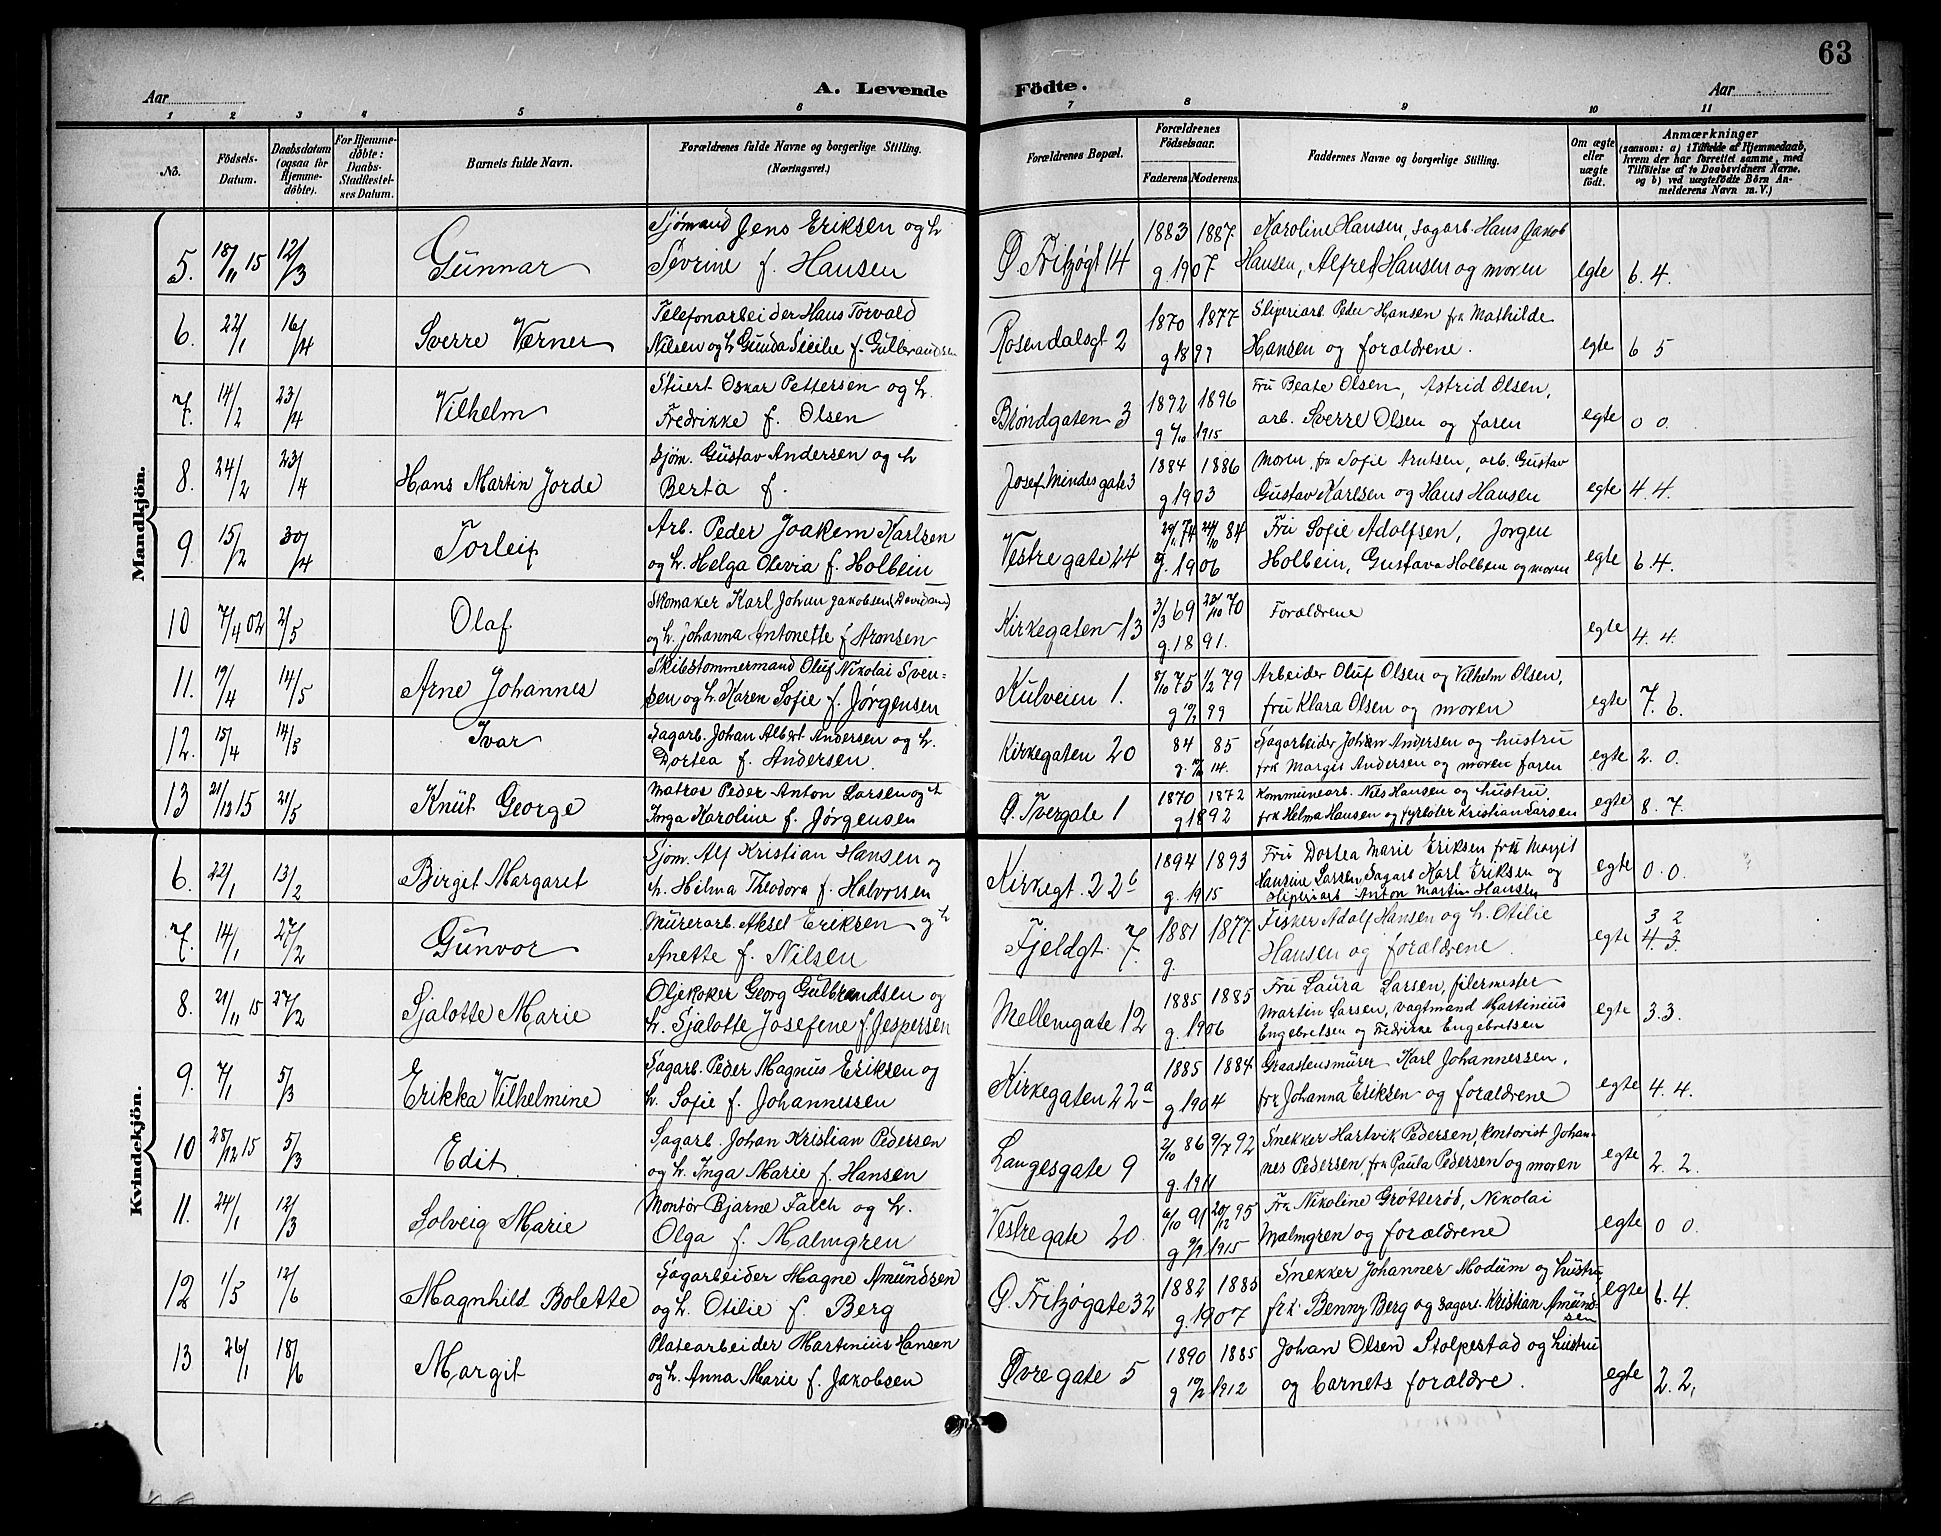 63
Aar
A. Levende
Födte.
Aar
1 2 3 4 5 6 7 8 9 10 11
No.
Födsels-Datum.
Daabsdatum (ogsaa for Hjemmedöbte).
For Hjemmedøbte: Daabs-Stadfæstelses Datum.
Barnets fulde Navn.
Forældrenes fulde Navne og borgerlige Stilling. (Næringsvei.)
Forældrenes Bopæl.
Forældrenes Födselsaar.
Faderens. Moderens.
Faddernes Navne og borgerlige Stilling.
Om ægte eller uægte födt.
Anmærkninger
(saasom: a) i Tilfælde af Hjemmedaab, hvem der har forrettet samme, med Tilföielse af to Daabsvidners Navne, og b) ved uægtefödte Börn Anmelderens Navn m. V.)
Mandkjön.
5. 18/11 15 12/3 Gunnar
Sjømand Jens Eriksen og h.
Sevrine f. Hansen
Ø Fritzøgt 14 1883 1887 g. 1907
Karoline Hansen, sagarb. Hans Jakob
Hansen, Alfred Hansen og moren egte 6. 4.
6. 22/1 16/4 Sverre Værner
Telefonarbeider Hans Torvald
Nilsen og h. Gunda Secilie f. Gulbrandsen
Rosendalsgt 2 1870 1877 g 1897
Sliperiarb. Peder Hansen frk Mathilde
Hansen og forældrene. egte 6 5
7. 14/2 23/4 Vilhelm
Stuert Oskar Pettersen og h.
Fredrikke f. Olsen
Brøndgaten 3 1892 1896 g 1915
Fru Beate Olsen, Astrid Olsen,
arb. Sverre Olsen og faren egte 0 0.
8. 24/2 23/4 Hans Martin Jorde
Sjøm. Gustav Andersen og h
Berta f.
Josef. Mindes gate 3 1884 1886 g 1903
Moren, fru Sofie Arntsen, arb. Gustav
Gustav Karlsen og Hans Hansen egte 4. 4.
9. 15/2 30/4 Torleif
Arb. Peder Joakem Karlsen
og h. Helga Olivia f. Holbein
Vestre gate 24 29/11 74 24/10 84 g. 1906
Fru Sofie Adolfsen, Jørgen
Holbein, Gustava Holbein og moren egte 6. 4.
10 7/4 02 2/5 Olaf
Skomaker Karl Johan Jakobsen (Davidsen)
og h. Johanna Antonette f Aronsen
Kirkegaten 13 3/3 69 23/10 70 g. 1891.
Forældrene egte 4. 4.
11. 19/4 14/5 Arne Johannes
Skibstømmermand Oluf Nikolai Sven-
sen og h. Karen Sofie f. Jørgensen
Kulveien 1. 5/10 75 1/2 79 g 99
Arbeider Oluf Olsen og Vilhelm Olsen,
fru Klara Olsen og moren egte 7. 6.
12. 15/4 14/5 Ivar
Sagarb. Johan Albert Andersen og h.
Dortea f. Andersen.
Kirkegaten 20 84 85 g. 14.
Sagarbeider Johan Andersen og hustru
frk Margit Andersen og moren faren egte 2. 0.
13 21/12 15 21/5 Knut George
Matros Peder Anton Larsen og h
Inga Karoline f. Jørgensen
Ø. Tvergate 1 1870 1872 g 1892
Kommunearb. Nils Hansen og hustru,
frk Helma Hansen og fyrbøter Kristian Larsen egte 8. 7.
Kvindekjön.
6. 22/1 13/2 Birgit Margaret
Sjøm. Alf Kristian Hansen og
h. Hilma Theodora f. Halvorsen
Kirkegt. 22b 1894 1893 g. 1915
Fru Dortea Marie Eriksen frk Margit
Hansine Larsen, Sagarb Karl Eriksen og
Sliperiarb Anton Martin Hansen egte 0. 0.
7. 14/1 27/2 Gunvor
Murerarb. Aksel Eriksen og h
Anette f. Nilsen
Fjeldgt. 7. 1881 1877 g.
Fisker Adolf Hansen og h. Otilie
Hansen og forældrene. egte 3 2
4. 3.
8. 21/11 15 27/2 Sjalotte Marie
Oljekoker Georg Gulbrandsen og
h. Sjalotte Josefine f. Jespersen
Mellemgate 12 1885 1885 g. 1906
Fru Laura Larsen, filermester
Martin Larsen, vagtmand Martinius
Engebretsen og Fredrikke Engebretsen egte 3. 3.
9. 7/1 5/3 Erikka Vilhelmine
Sagarb. Peder Magnus Eriksen og
h. Sofie f. Johannessen
Kirkegaten 22a 1885 1884 g 1904
Graastensmurer Karl Johannessen,
frk Johanna Eriksen og forældrene egte 4. 4.
10 28/12 15 5/3 Edit.
Sagarb. Johan Kristian Pedersen
og h. Inga Marie f. Hansen
Langesgate 9 2/10 86 9/7 92 g. 1911
Snekker Hartvik Pedersen, kontorist Johan-
nes Pedersen, fru Paula Pedersen og moren egte 2. 2.
11. 24/1 12/3 Solveig Marie
Montør Bjarne Falch og h.
Olga f. Malmgren
Vestre gate 20. 6/10 91 20/12 95 g 1915
Fru Nikoline Grøtterød, Nikolai
Malmgren og forældrene egte 0 0.
12 1/5 12/6 Magnhild Bolette
Sagarbeider Magne Amundsen
og h. Otilie f. Berg
Ø. Fritzøgate 32 1882 1885 g. 1907
Snekker Johannes Modum og hustru
frk. Benny Berg og Sagarb. Kristian Amund-
sen egte 6. 4.
13 26/1 18/6 Margit
Platearbeider Martinius Hansen
og h. Anna Marie f. Jakobsen
Øvre gate 5 1890 1885 g 19/2 1912
Johan Olsen Stolpestad og hustru
og barnets forældre. egte 2. 2.